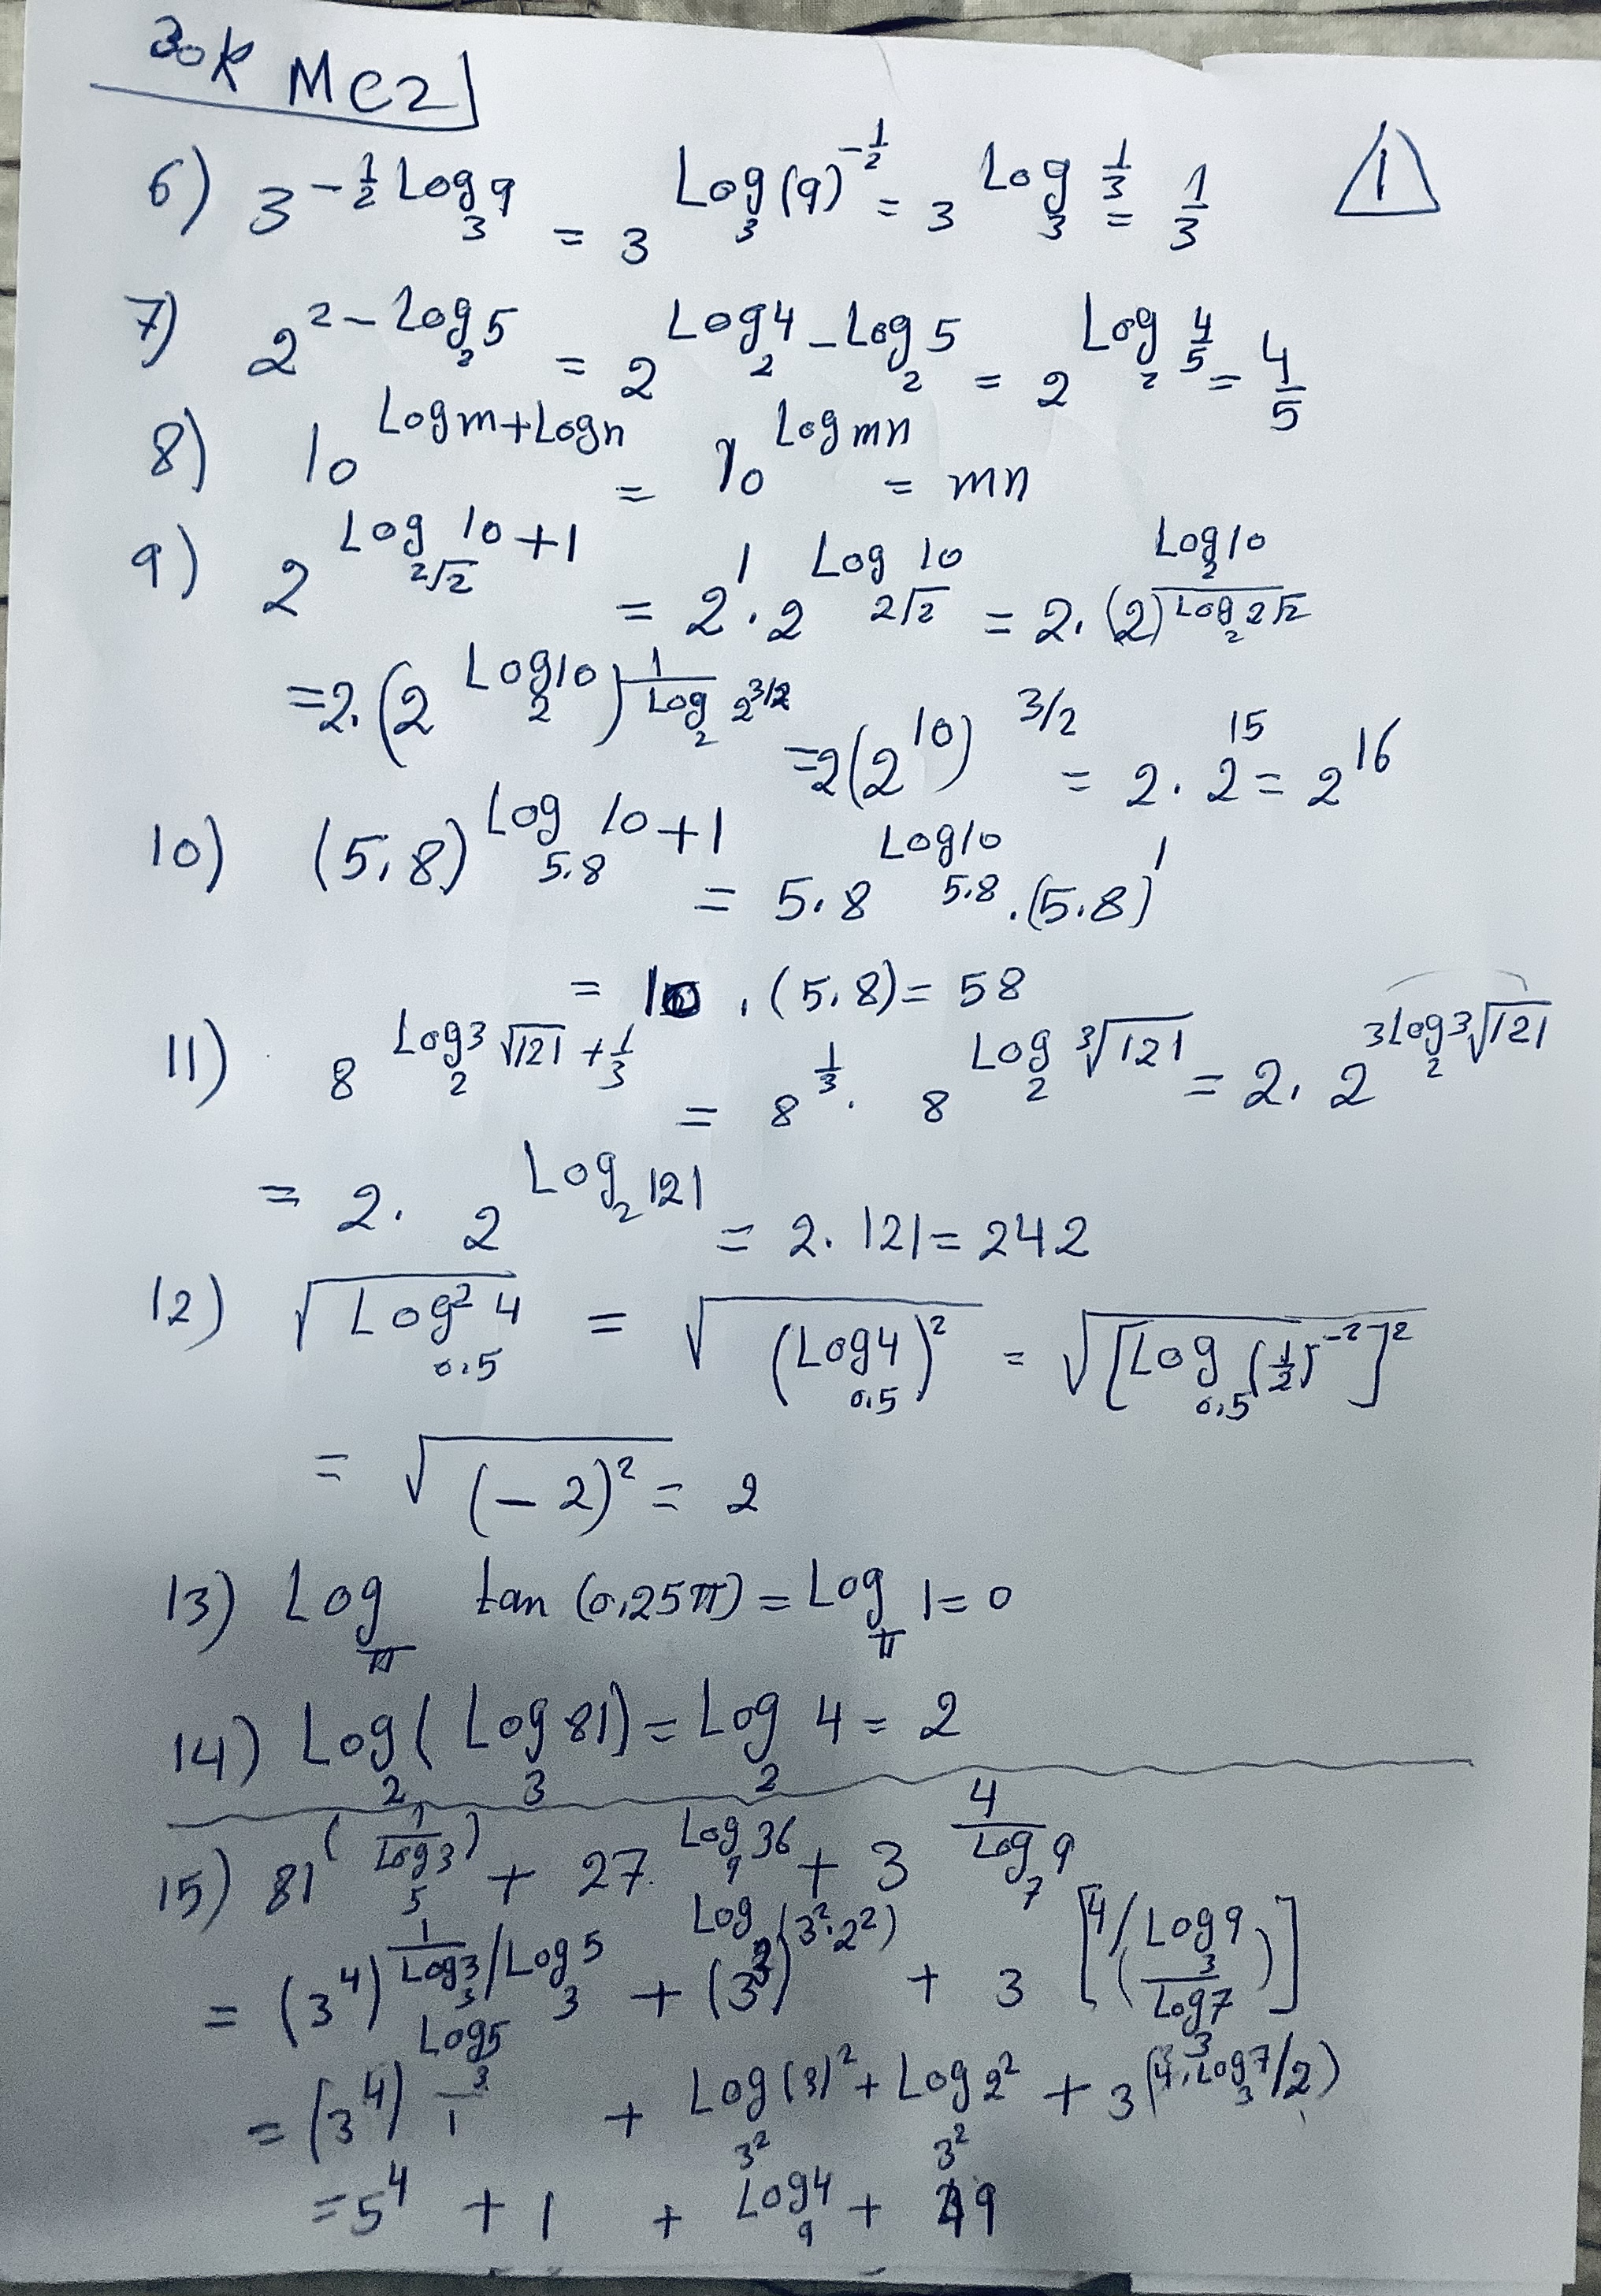 30k MC2
1
6) 3^(-1/2 Log_3 9) = 3^(Log_3 (9)^(-1/2)) = 3^(Log_3 1/3) = 1/3
7) 2^(2-Log_2 5) = 2^(Log_2 4 - Log_2 5) = 2^(Log_2 4/5) = 4/5
8) 10^(Logm+Logn) = 10^(Logmn) = mn
9) 2^(Log_(2√2) 10 + 1) = 2^1 . 2^(Log_(2√2) 10) = 2. (2)^(Log_2 10 / Log_2 2√2)
=2. (2^(Log_2 10))^(1/(Log_2 2^(3/2))) =2(2^10)^(3/2) = 2. 2^15 = 2^16
10) (5.8)^(Log_5.8 10 + 1) = 5.8^(Log_5.8 10) . (5.8)^1
= 10 . (5.8) = 58
11) 8^(Log_2 3√121 + 1/3) = 8^(1/3) . 8^(Log_2 ³√121) = 2. 2^(3Log_2 ³√121)
= 2. 2^(Log_2 121) = 2. 121 = 242
12) √(Log²_0.5 4) = √((Log_0.5 4)²) = √([Log_0.5 (1/2)^-2]²)
= √((-2)²) = 2
13) Log_π tan (0.25π) = Log_π 1 = 0
14) Log_2 (Log_3 81) = Log_2 4 = 2
15) 81^(1/(Log_5 3)) + 27^(Log_9 36) + 3^(4/(Log_7 9))
= (3^4)^(1/(Log_3 3/Log_3 5)) + (3^2)^(Log (3².2²)) + 3^[4/(Log_3 9/Log_3 7)]
= (3^4)^(Log_3 5/1) + Log_(3²) (3)² + Log_(3²) 2² + 3^(4.Log_3 7/2)
= 5^4 + 1 + Log_9 4 + 49